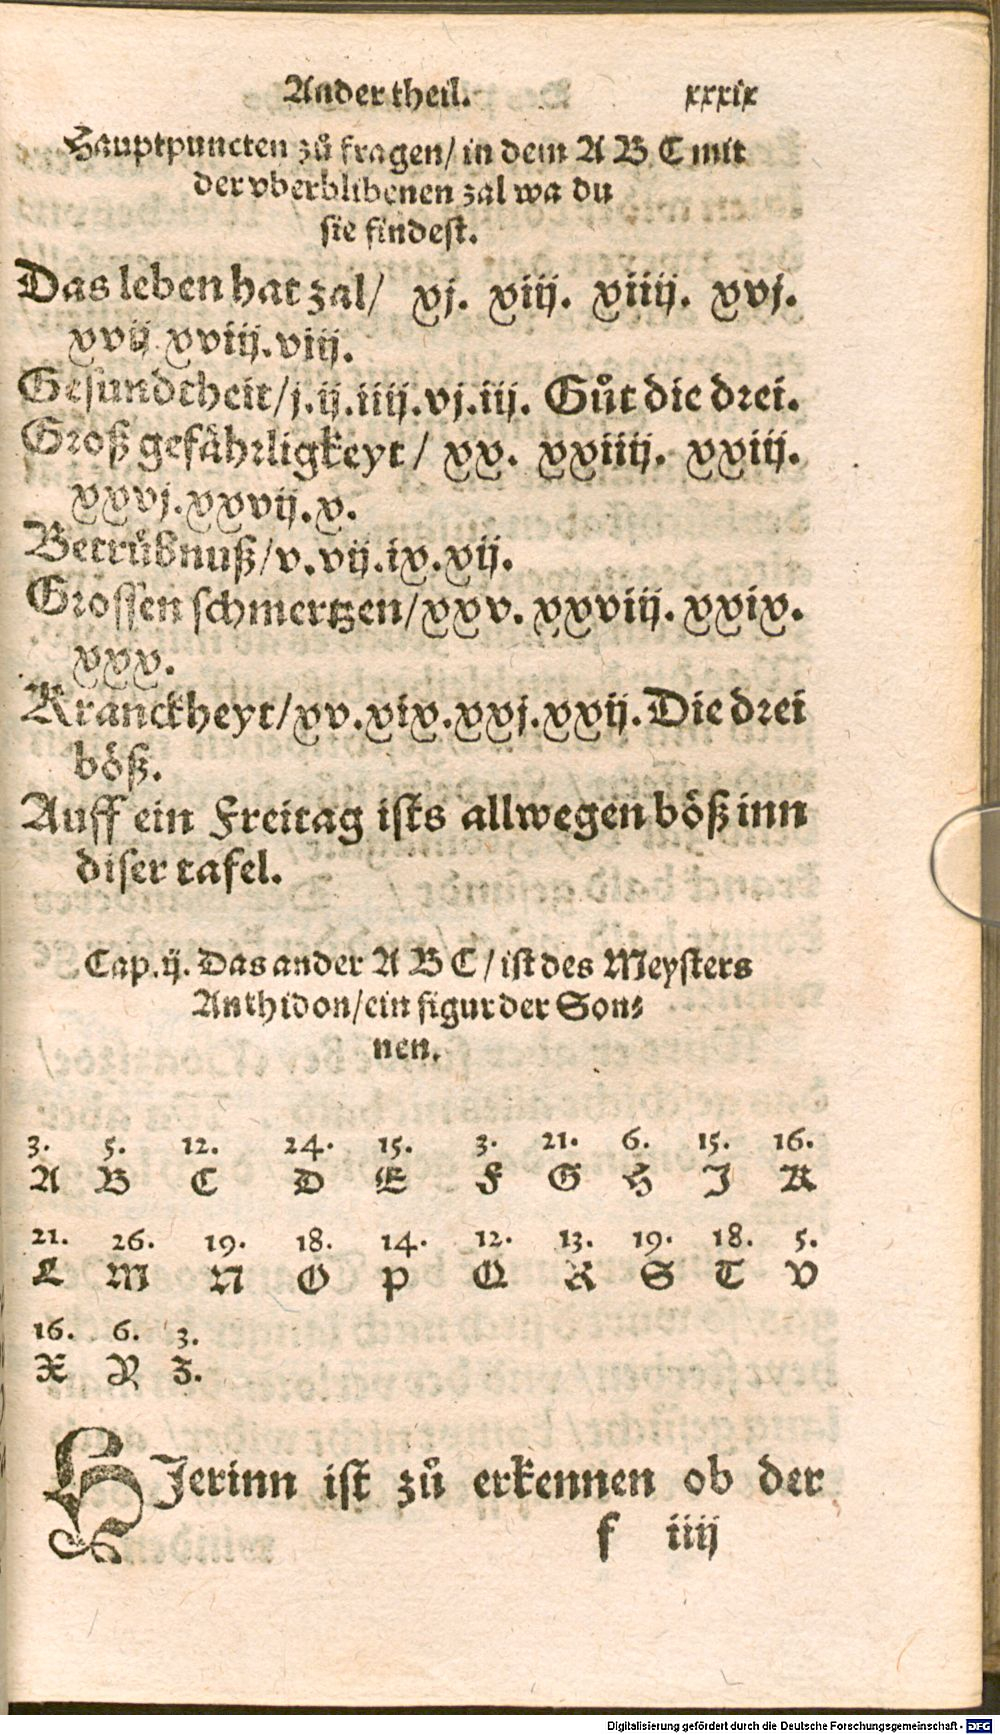 Ander theil. xxxix
Hauptpuncten zů fragen/ in dem A B C mit
der vberblibenen zal wa du
sie findest.
Das leben hat zal/ xj. xiij. xiiij. xvj.
xvij xviij. viij.
Gesundtheit/ j. ij. iiij. vj. iij. Gůt die drei.
Groß gefåhrligkeyt / xx. xxiiij. xxiij.
xxvj. xxvij. x.
Betrůbnuß/ v. vij. ix. xij.
Grossen schmertzen/ xxv. xxviij. xxix.
xxx.
Kranckheyt/ xv. xix. xxj. xxij. Die drei
böß.
Auff ein Freitag ists allwegen böß inn
diser tafel.
Cap. ij. Das ander A B C / ist des Meysters
Anthidon/ ein figur der Son⸗
nen.
3. 5. 12. 24. 15. 3. 21. 6. 15. 16.
A B C D E F G H J K
21. 26. 19. 18. 14. 12. 13. 19. 18. 5.
L M N O P Q R S T V
16. 6. 3.
X Y Z.
HJerinn ist zů erkennen ob der
f iiij
Digitalisierung gefördert durch die Deutsche Forschungsgemeinschaft - DFG